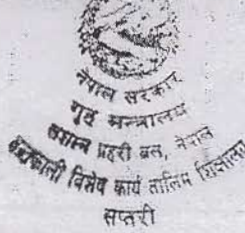 नेपाल सरकार
गृह मन्त्रालय
सशस्त्र प्रहरी बल, नेपाल
विशेष कार्य तालिम शिक्षालय
सप्तरी